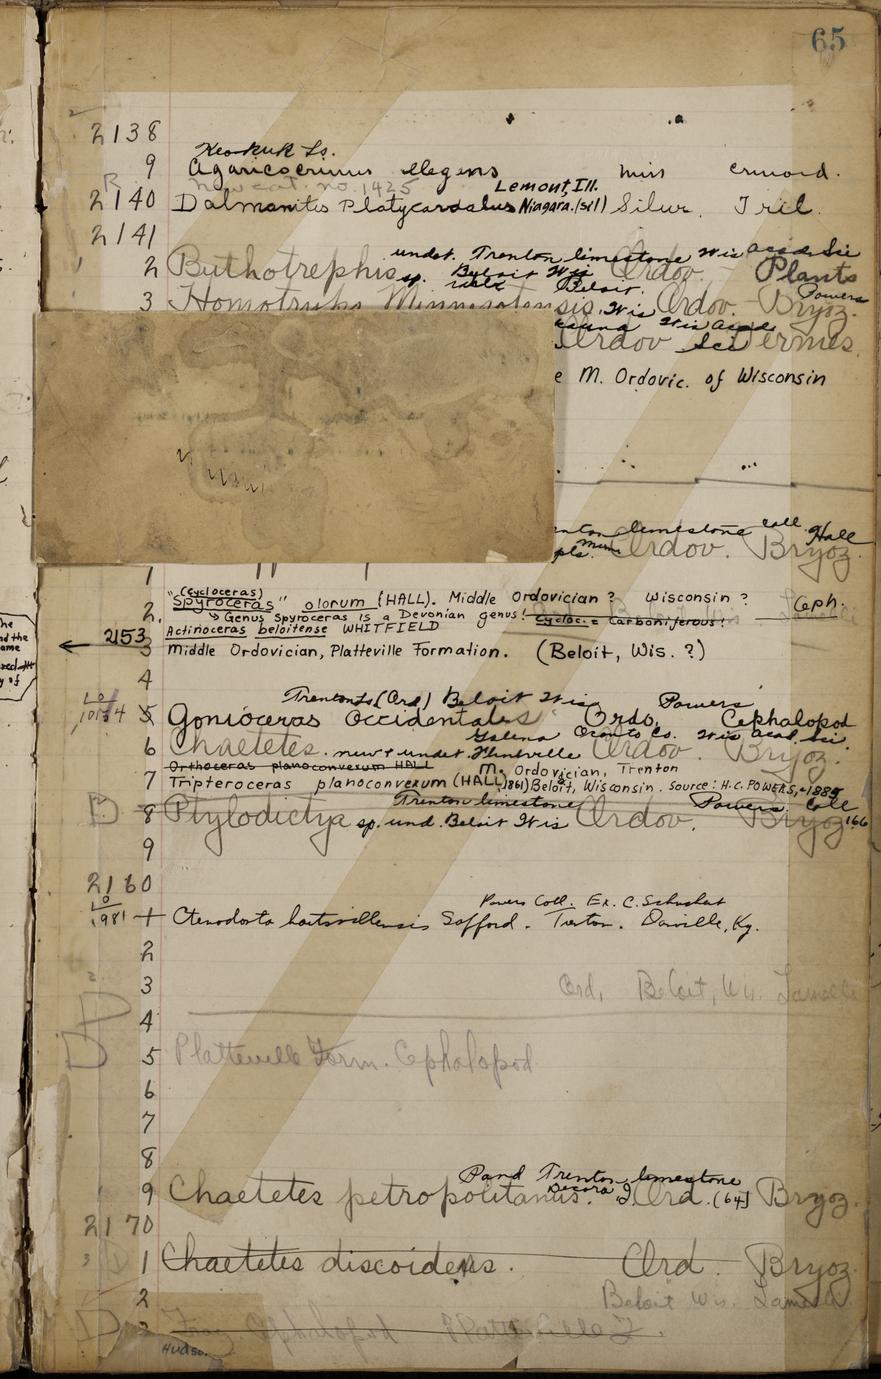 65
2138
Keokuk Ls.
9 Agaricocrinus elegens miss crinoid.
R new cat. no. 1425 Lemont, Ill.
2140 Dalmanites Platycaudalus Niagara. (sil) Silur. Tril.
2141
undet. Trenton limestone Wis acad. Sci
2 Buthotrephis sp. Beloit Wis Ordov. - Plants
Beloit. Powers
3 Homotrypa Minnesotensis, Wis Ordov. - Bryoz.
Wis acad
Ordov Sci Vermes.
e M. Ordovic. of Wisconsin
enton limestone coll. Hall
Ordov. Bryoz.
1
(Cycloceras)
2. "Spyroceras" olorum (HALL). Middle Ordovician? Wisconsin? Ceph.
Genus Spyroceras is a Devonian genus! Cycloc. = Carboniferous!
2153 Actinoceras beloitense WHITFIELD
3 Middle Ordovician, Platteville Formation. (Beloit, Wis.?)
4
Trenton Ls (Ord) Beloit Wis Powers
5 Gonioceras Occidentales Ordo. Cephalopod
Galena Oconto Co. Wis acad. Sci.
6 Chaetetes. new & undet. Flintville Ordov. Bryoz.
Orthoceras planoconvexum HALL M. Ordovician, Trenton
7 Tripteroceras planoconvexum (HALL, 1861) Beloit, Wisconsin. Source: H.C. POWERS, ~1885
Trenton limestone Powers Coll
B 8 Ptylodictya sp. und. Beloit Wis Ordov. Bryoz. 166
9
2160
Powers Coll. Ex. C. Schuchert
1 Ctenodonta hartsvillensis Safford. Trenton. Danville, Ky.
2
3 Ord, Beloit, Wis. Lamelli
4
D 5 Platteville Form. Cephalopod
6
7
8
Pand Trenton limestone
9 Chaetetes petropolitanus. Decora I. Ord. (64) Bryoz.
2170
1 Chaetetes discoideus. Ord. Bryoz.
2 Beloit Wis. Lamell
D Frag. Cephalopod Platteville F.
Hudso.